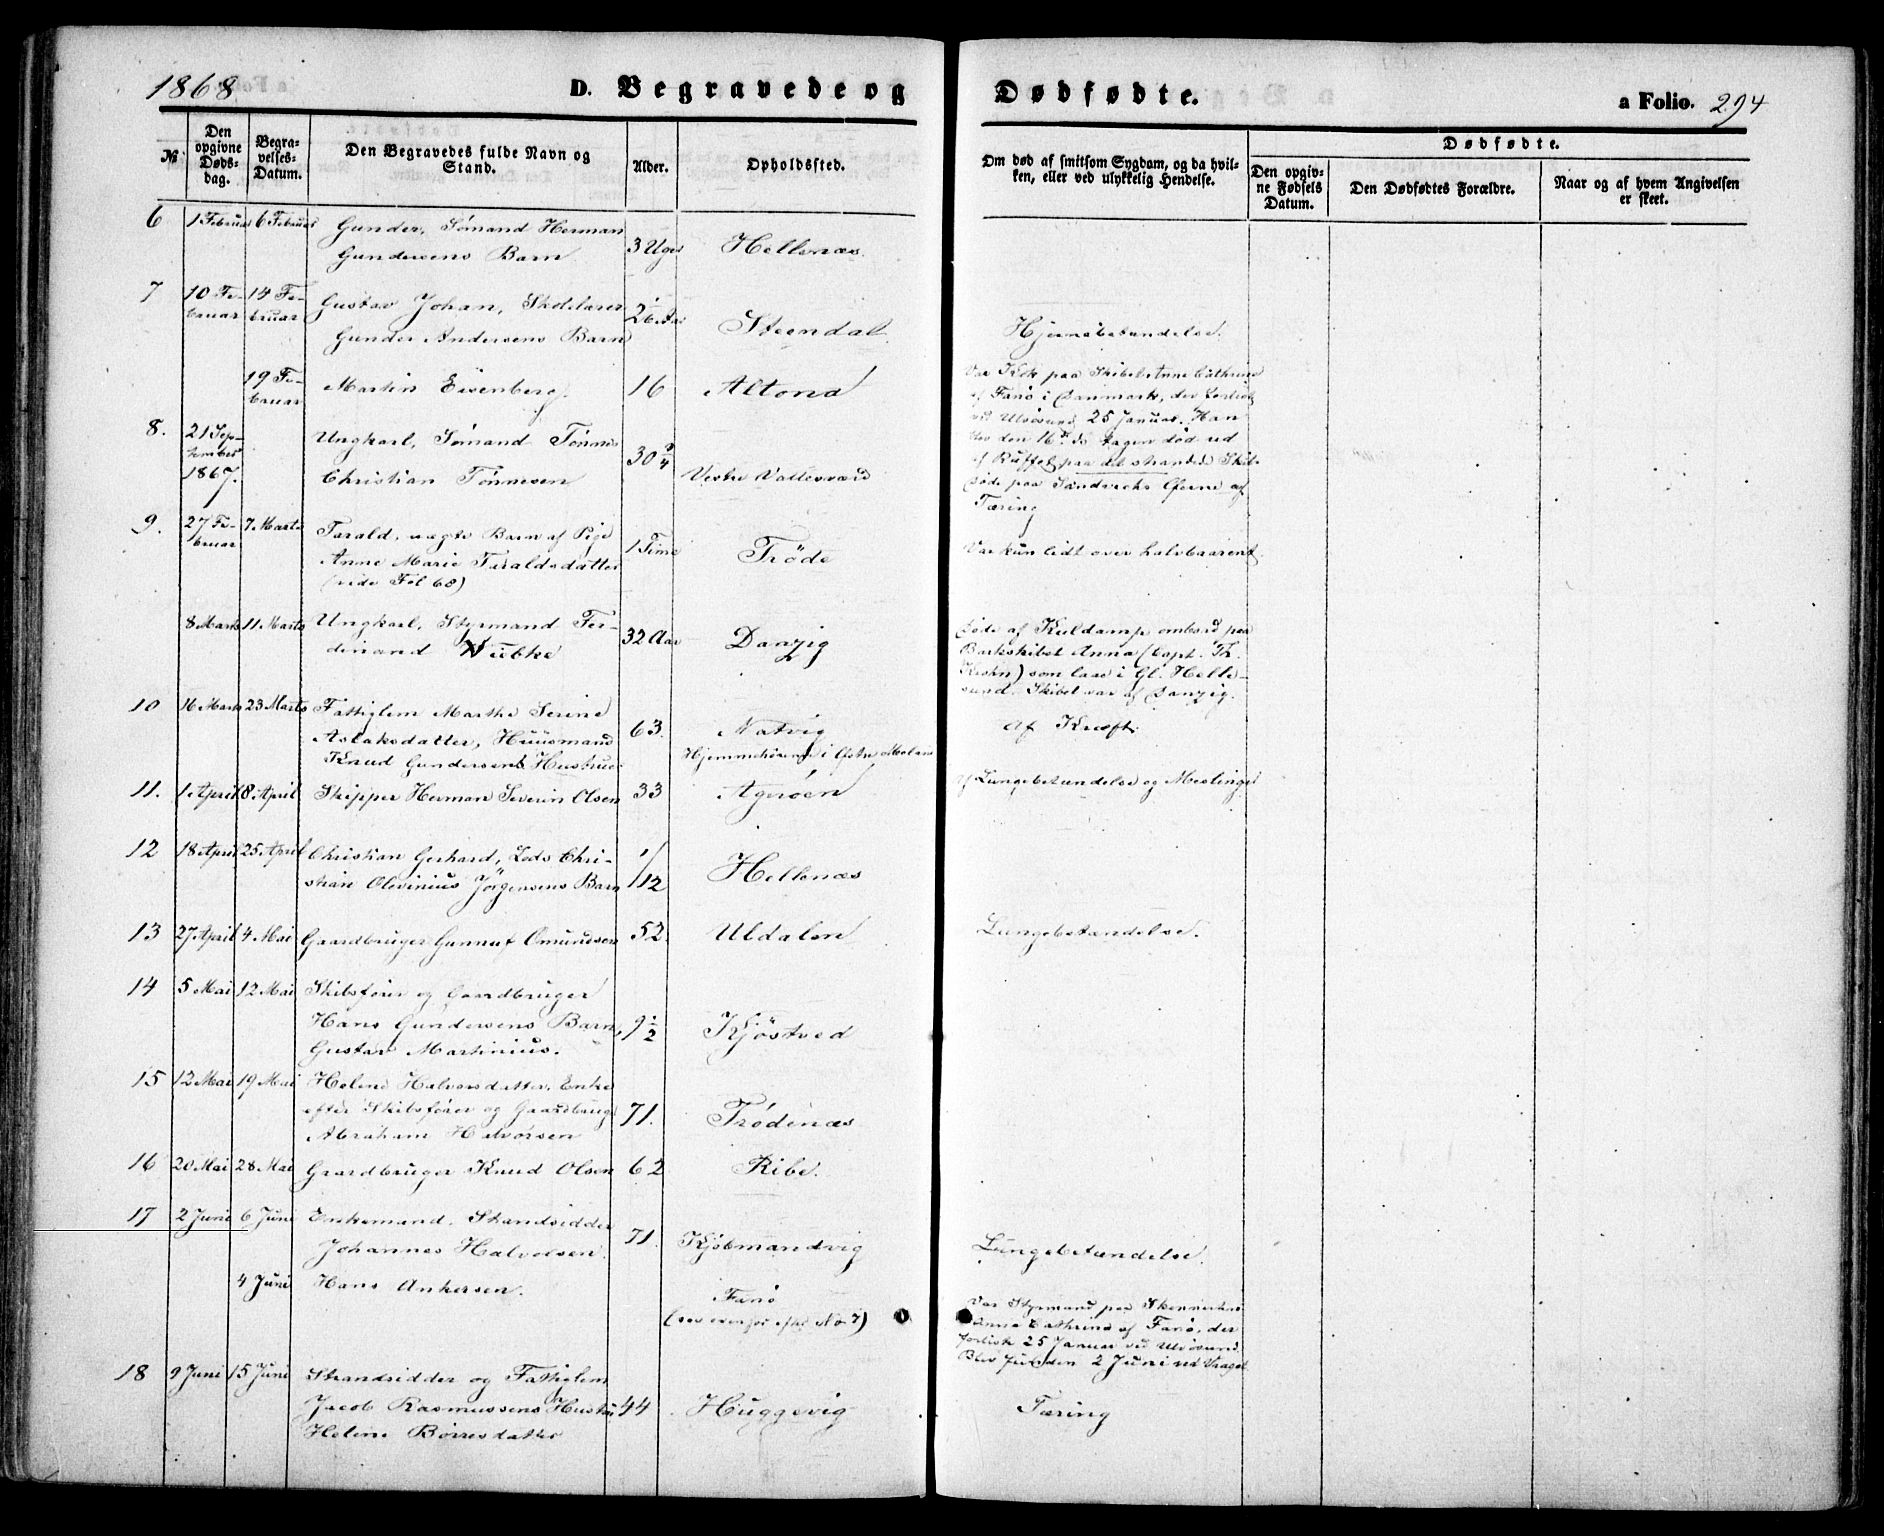 1868
D. Begravede og Dødfødte.
a Folio. 294
№
Den opgivne Døds-dag.
Begra-velses-Datum.
Den Begravedes fulde Navn og Stand.
Alder.
Opholdsted.
Om død af smitsom Sygdom, og da hvil-
ken, eller ved ulykkelig Hendelse.
Dødfødte.
Den opgiv-ne Fødsels Datum.
Den Dødfødtes Forældre.
Naar og af hvem Angivelsen er skeet.
6 1 Februar 6 Februar Gunder, Sømand Herman
Gundersens Barn. 3 Uger Hellenæs.
7 10 Fe- 14 Fe- Gustav Johan, Skolelærer
bruar bruar Gunder Andersens Barn Steendal Hjernebetændelse.
19 Fe-
bruar Martin Eisenberg. 16 Altona
Var Kok paa Skibet Anne Cathrine
af Fanø i Danmark, der forliste
ved Ulvøsund 25 Januar. Han
blev den 16de ds tagen død ud
af Ruffet paa det strandede Skib.
8. 21 Sep-
tember
1867. Ungkarl, Sømand Tønnes
Christian Tønnesen 30 3/4 Vestre Vallesværd
Døde paa Sandwichs Øerne af
Tæring
9. 27 Fe-
bruar 7 Marts Tarald, uægte Barn af Pige
Anne Marie Taraldsdatter
(vide Fol 68) 1 Time Trøde Var kun lidt over halvbaarent.
8 Marts 11 Marts Ungkarl, Styrmand Fer-
dinand Wiebke 32 Aar Danzig
Døde af Kuldamp ombord paa
Barkskibet Anna (Capt. Th.
) som laae i Gl. Helle-
sund. Skibet var af Danzig.
10 16 Marts 23 Marts Fattiglem Marthe Serine
Aslaksdatter, Huusmand
Knud Gundersens Hustrue 63. Natvig
Hjemmehörende i Østre Moland
af Kræft.
11. 1 April 8 April Skipper Herman Severin Olsen 33 Agerøen af Lungebetændelse og Meslinger
12 18 April 25 April Christian Gerhard, Lods Chri-
stian Olevinius Jørgensens Barn 1/12 Hellenæs
13 27 April 4 Mai Gaardbruger Gunnuf Omundsen 52. Ubdalen Lungebetændelse.
14 5 Mai 12 Mai Skibsfører og Gaardbruger
Hans Gundersens Barn,
Gustav Martinius. 9 1/2 Kjøstved
15 12 Mai 19 Mai Helene Halvorsdatter, Enke
efter Skibsfører og Gaardbruger
Abraham Halvorsen 71. Trødenæs
16 20 Mai 28 Mai Gaardbruger Knud Olsen 62 Ribe.
17 2 Juni 6 Juni Enkemand, Strandsidder
Johannes Halvorsen. 71. Kjøbmandvig Lungebetændelse.
4 Juni Hans Ankersen. Fanö
(see ovenfor efter No 7)
Var Styrmand paa Skonnerten
Anne Cathrine af Fanø, der
forliste 25 Januar ved Ulvøsund.
Blev funden 2 Juni ved Vraget
18 9 Juni 15 Juni Strandsidder og Fattiglem
Jacob Rasmussens Hustru
Helene Børresdatter 44 Huggevig Tæring